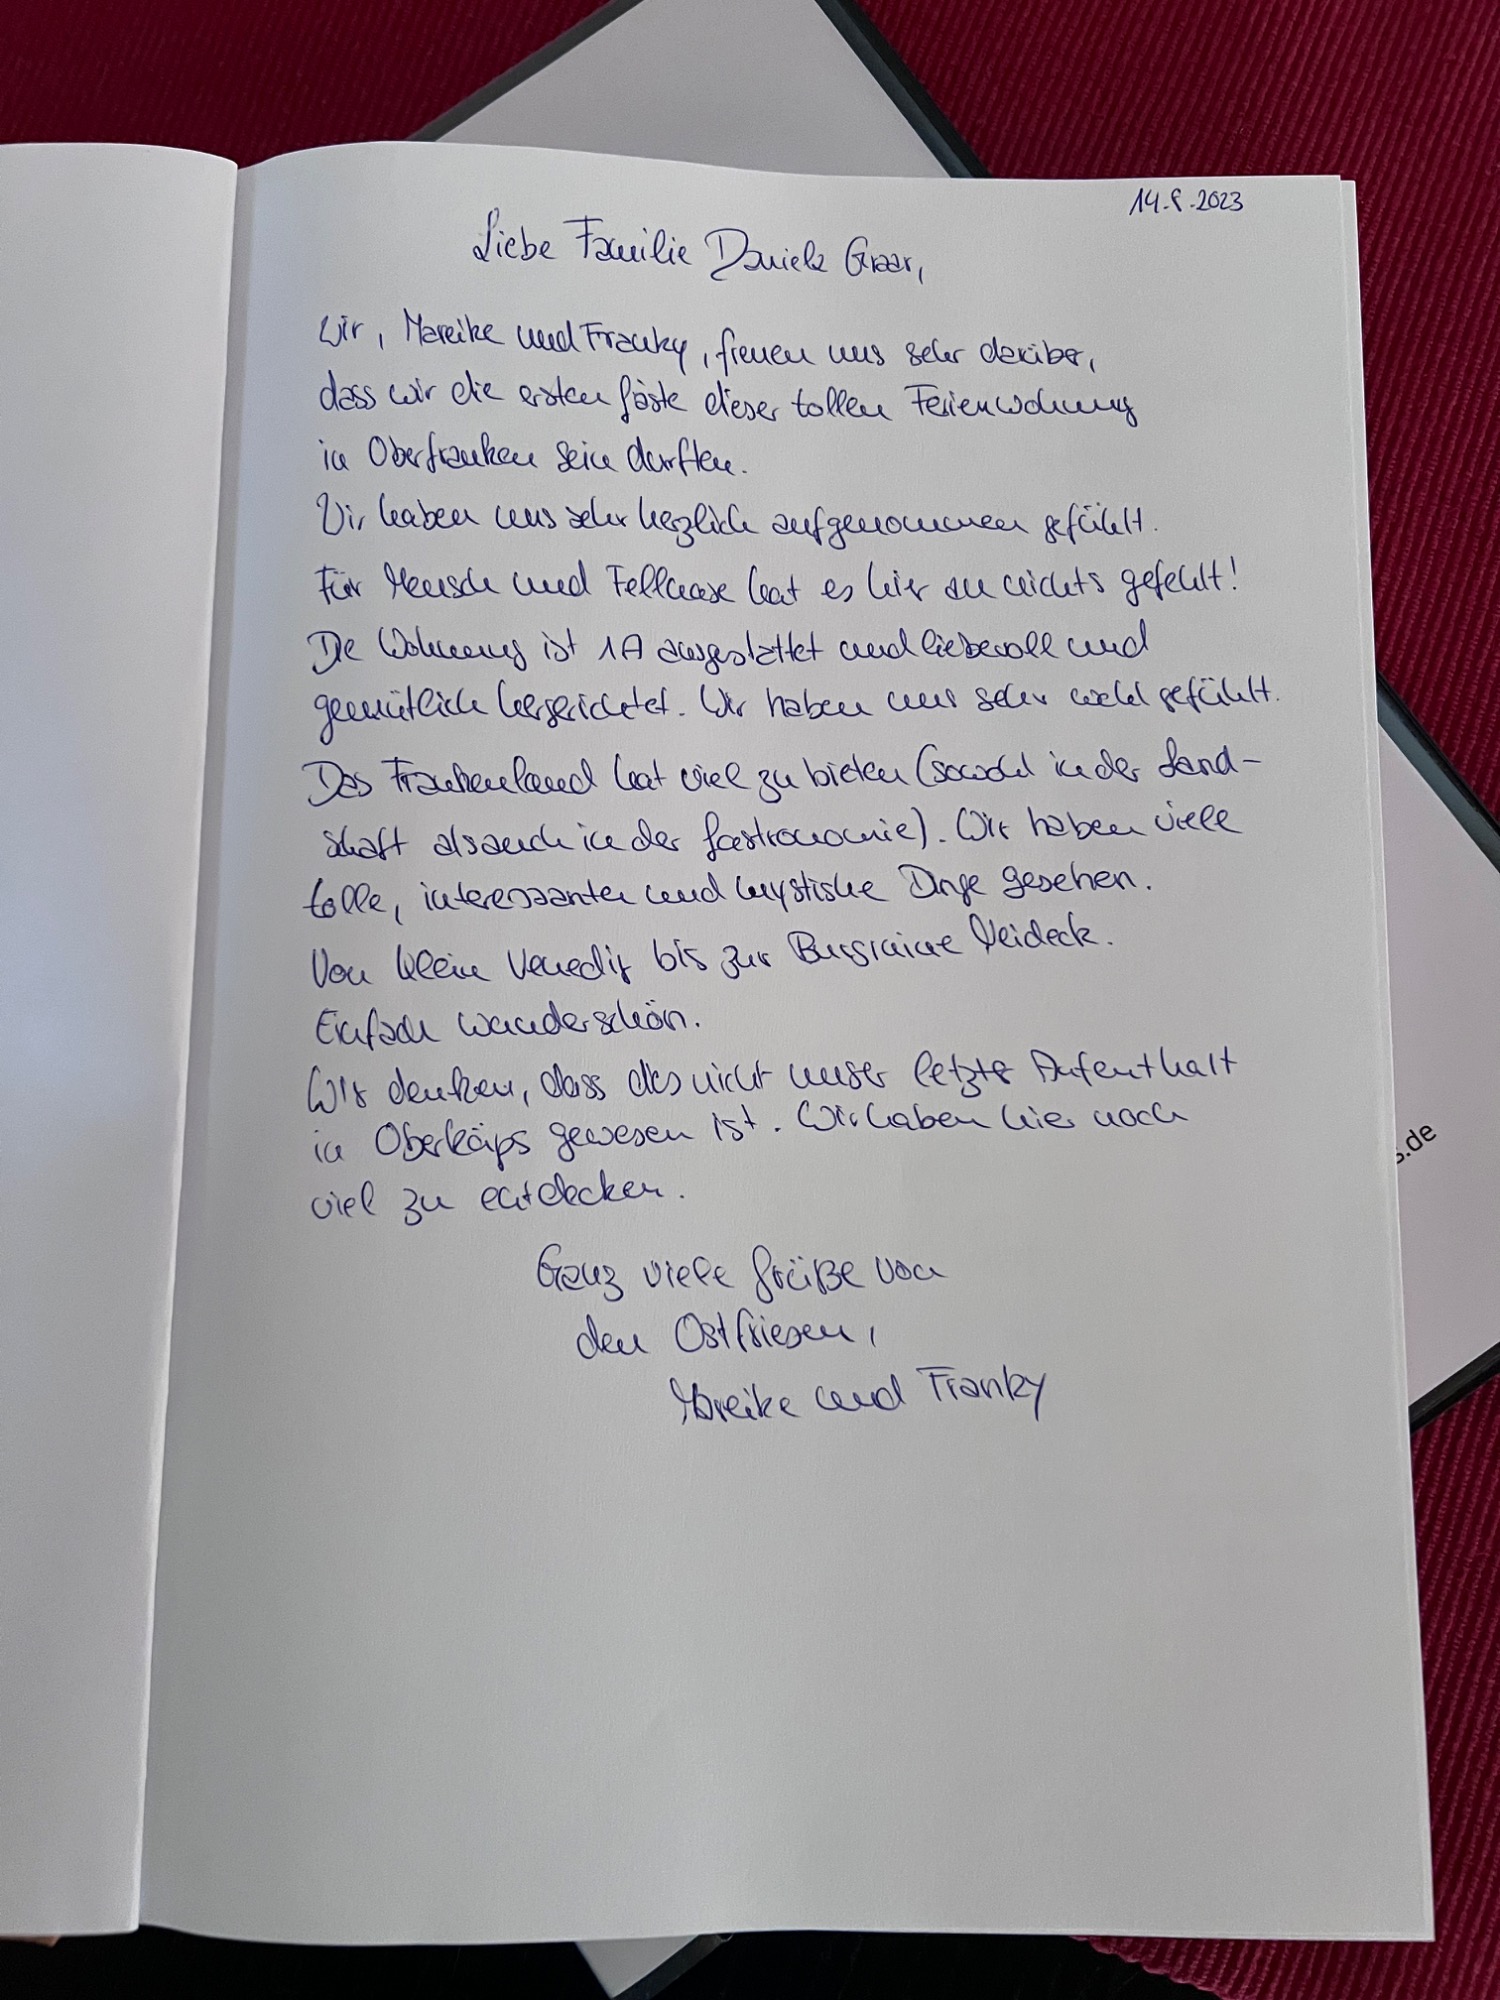 14.8.2023
Liebe Familie Daniela Graar,
Wir, Mareike und Franky, freuen uns sehr darüber,
dass wir die ersten Gäste dieser tollen Ferienwohnung
in Oberfranken sein durften.
Wir haben uns sehr herzlich aufgenommen gefühlt.
Für Mensch und Fellnase hat es hier an nichts gefehlt!
Die Wohnung ist 1A ausgestattet und liebevoll und
gemütlich hergerichtet. Wir haben uns sehr wohl gefühlt.
Das Frankenland hat viel zu bieten (sowohl in der Land-
schaft als auch in der Gastronomie). Wir haben viele
tolle, interessante und mystische Dinge gesehen.
Von klein Venedig bis zur Burgruine Neideck.
Einfach wunderschön.
Wir denken, dass dies nicht unser letzter Aufenthalt
in Oberköps gewesen ist. Wir haben hier noch
viel zu entdecken.
Ganz viele Grüße von
den Ostfriesen,
Mareike und Franky
s.de